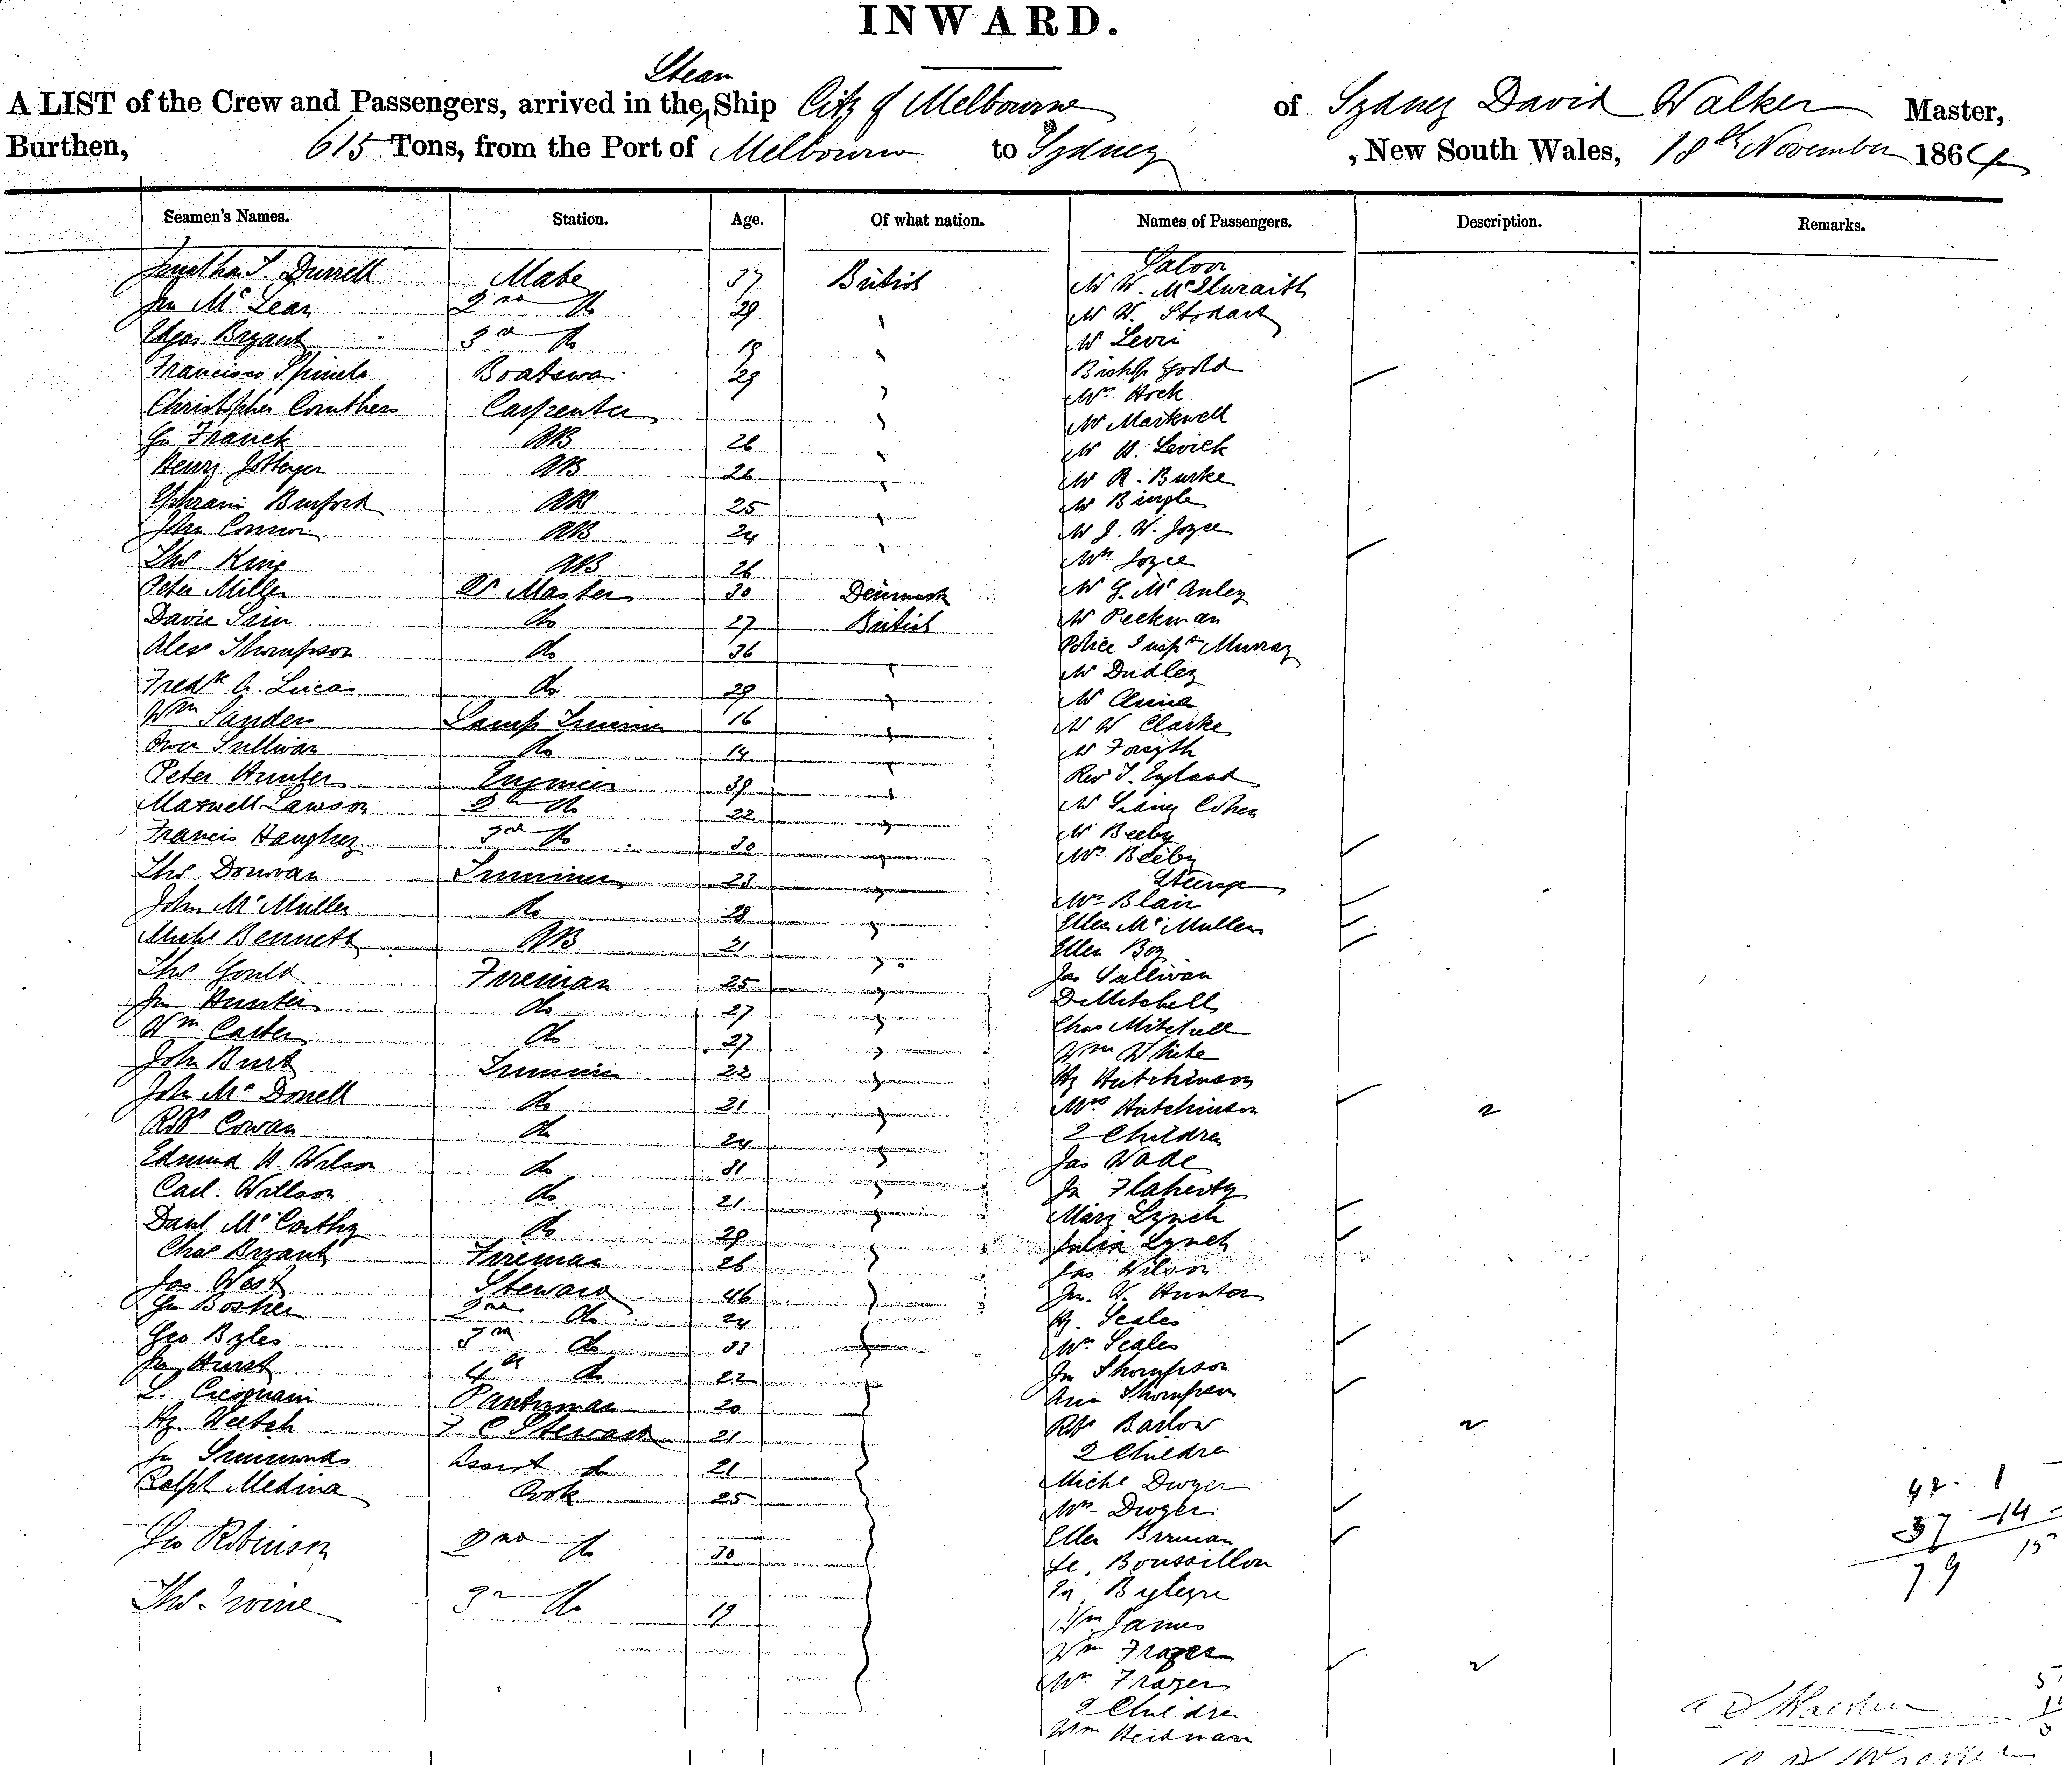 INWARD.
Steam
A LIST of the Crew and Passengers, arrived in the Ship City of Melbourne of Sydney David Walker Master,
Burthen, 615 Tons, from the Port of Melbourne to Sydney, New South Wales, 18th November 1864
Seamen's Names. Station. Age. Of what nation. Names of Passengers. Description. Remarks.
Saloon
Durrell Mate 37 British Mr W. McIlwraith
Jn McLean 2nd do 29 " Mr W. Stodart
Bryant 3rd do 19 " Mr Levi
Francisco Boatswa 29 " Bishop Goold
Christopher Carpenter " Mrs Hock
Jn Franck AB 26 " Mr Markwell
Henry AB 26 " Mr Levick
Ephraim Burford AB 25 " Mr R. Burke
John Connor AB 24 " Mr Bingle
Thos King AB 26 Mr J. W. Joyce
Mrs Joyce
Peter Miller Qr Master 30 Denmark Mr G. McAuley
David Sain do 27 British Mr Peckman
Alexr Thompson do 36 Police Inspr Murray
Fredk A. Lucas do 29 " Mr Dudley
Mr
Wm Sanders Lamp Trimmer 16 " Mr W Clarke
Owen Sullivan do 14 " Mr Forsyth
Peter Hunter Engineer 39 " Rev J.
Maxwell Lawson 2nd do 22 " Mr Sidney Cohen
Francis Haughey 3rd do 30 " Mr Beeby
Mrs Beeby
Thos Donovan Trimmer 23 " Steerage
John McMullen do 28 " Mrs Blair
Ellen McMullen
Michl Bennett AB 21 " Ellen Boy
Thos Gould Fireman 25 " Jas Sullivan
Jn Hunter do 27 " D Mitchell
Wm Carter do 27 " Chas Mitchell
Wm White
John Burt Trimmer 22 " Hy Hutchinson
John McDonell do 21 " Mrs Hutchinson 2
Robt Cowan do 24 " 2 Children
Edmund H Wilson do 31 " Jas Wade
Carl Willson do 21 " Jn Flaherty
Danl McCarthy do 29 " Mary Lynch
Julia Lynch
Chas Bryant Fireman 26 " Jas Wilson
Jas West Steward 46 Jn. W. Hunter
Jn Bosher 2nd do 24 Hy. Scales
Geo Byles 3rd do 33 Mrs Scales
Jn Hurst 4th do 22 Jn Thompson
L. Cicognani Pantryman 20 Ann Thompson
Hy. Veitch F C Steward 21 Robt Barlow 2
2 Children
Jn Simmonds Assist do 21 Michl Dwyer
Ralph Medina Cook 25 Mrs Dwyer
42 - 1
Geo Robinson 2nd do 30 Ellen
37 - 14
Le. Boussillon
79 15
Thos Irvine 3rd do 19
Wm James
Wm Frazer
Mrs Frazer 2
2 Children
Wm